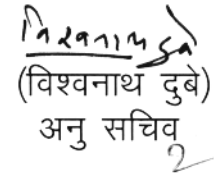 विश्वनाथ दुबे
(विश्वनाथ दुबे)
अनु सचिव
2